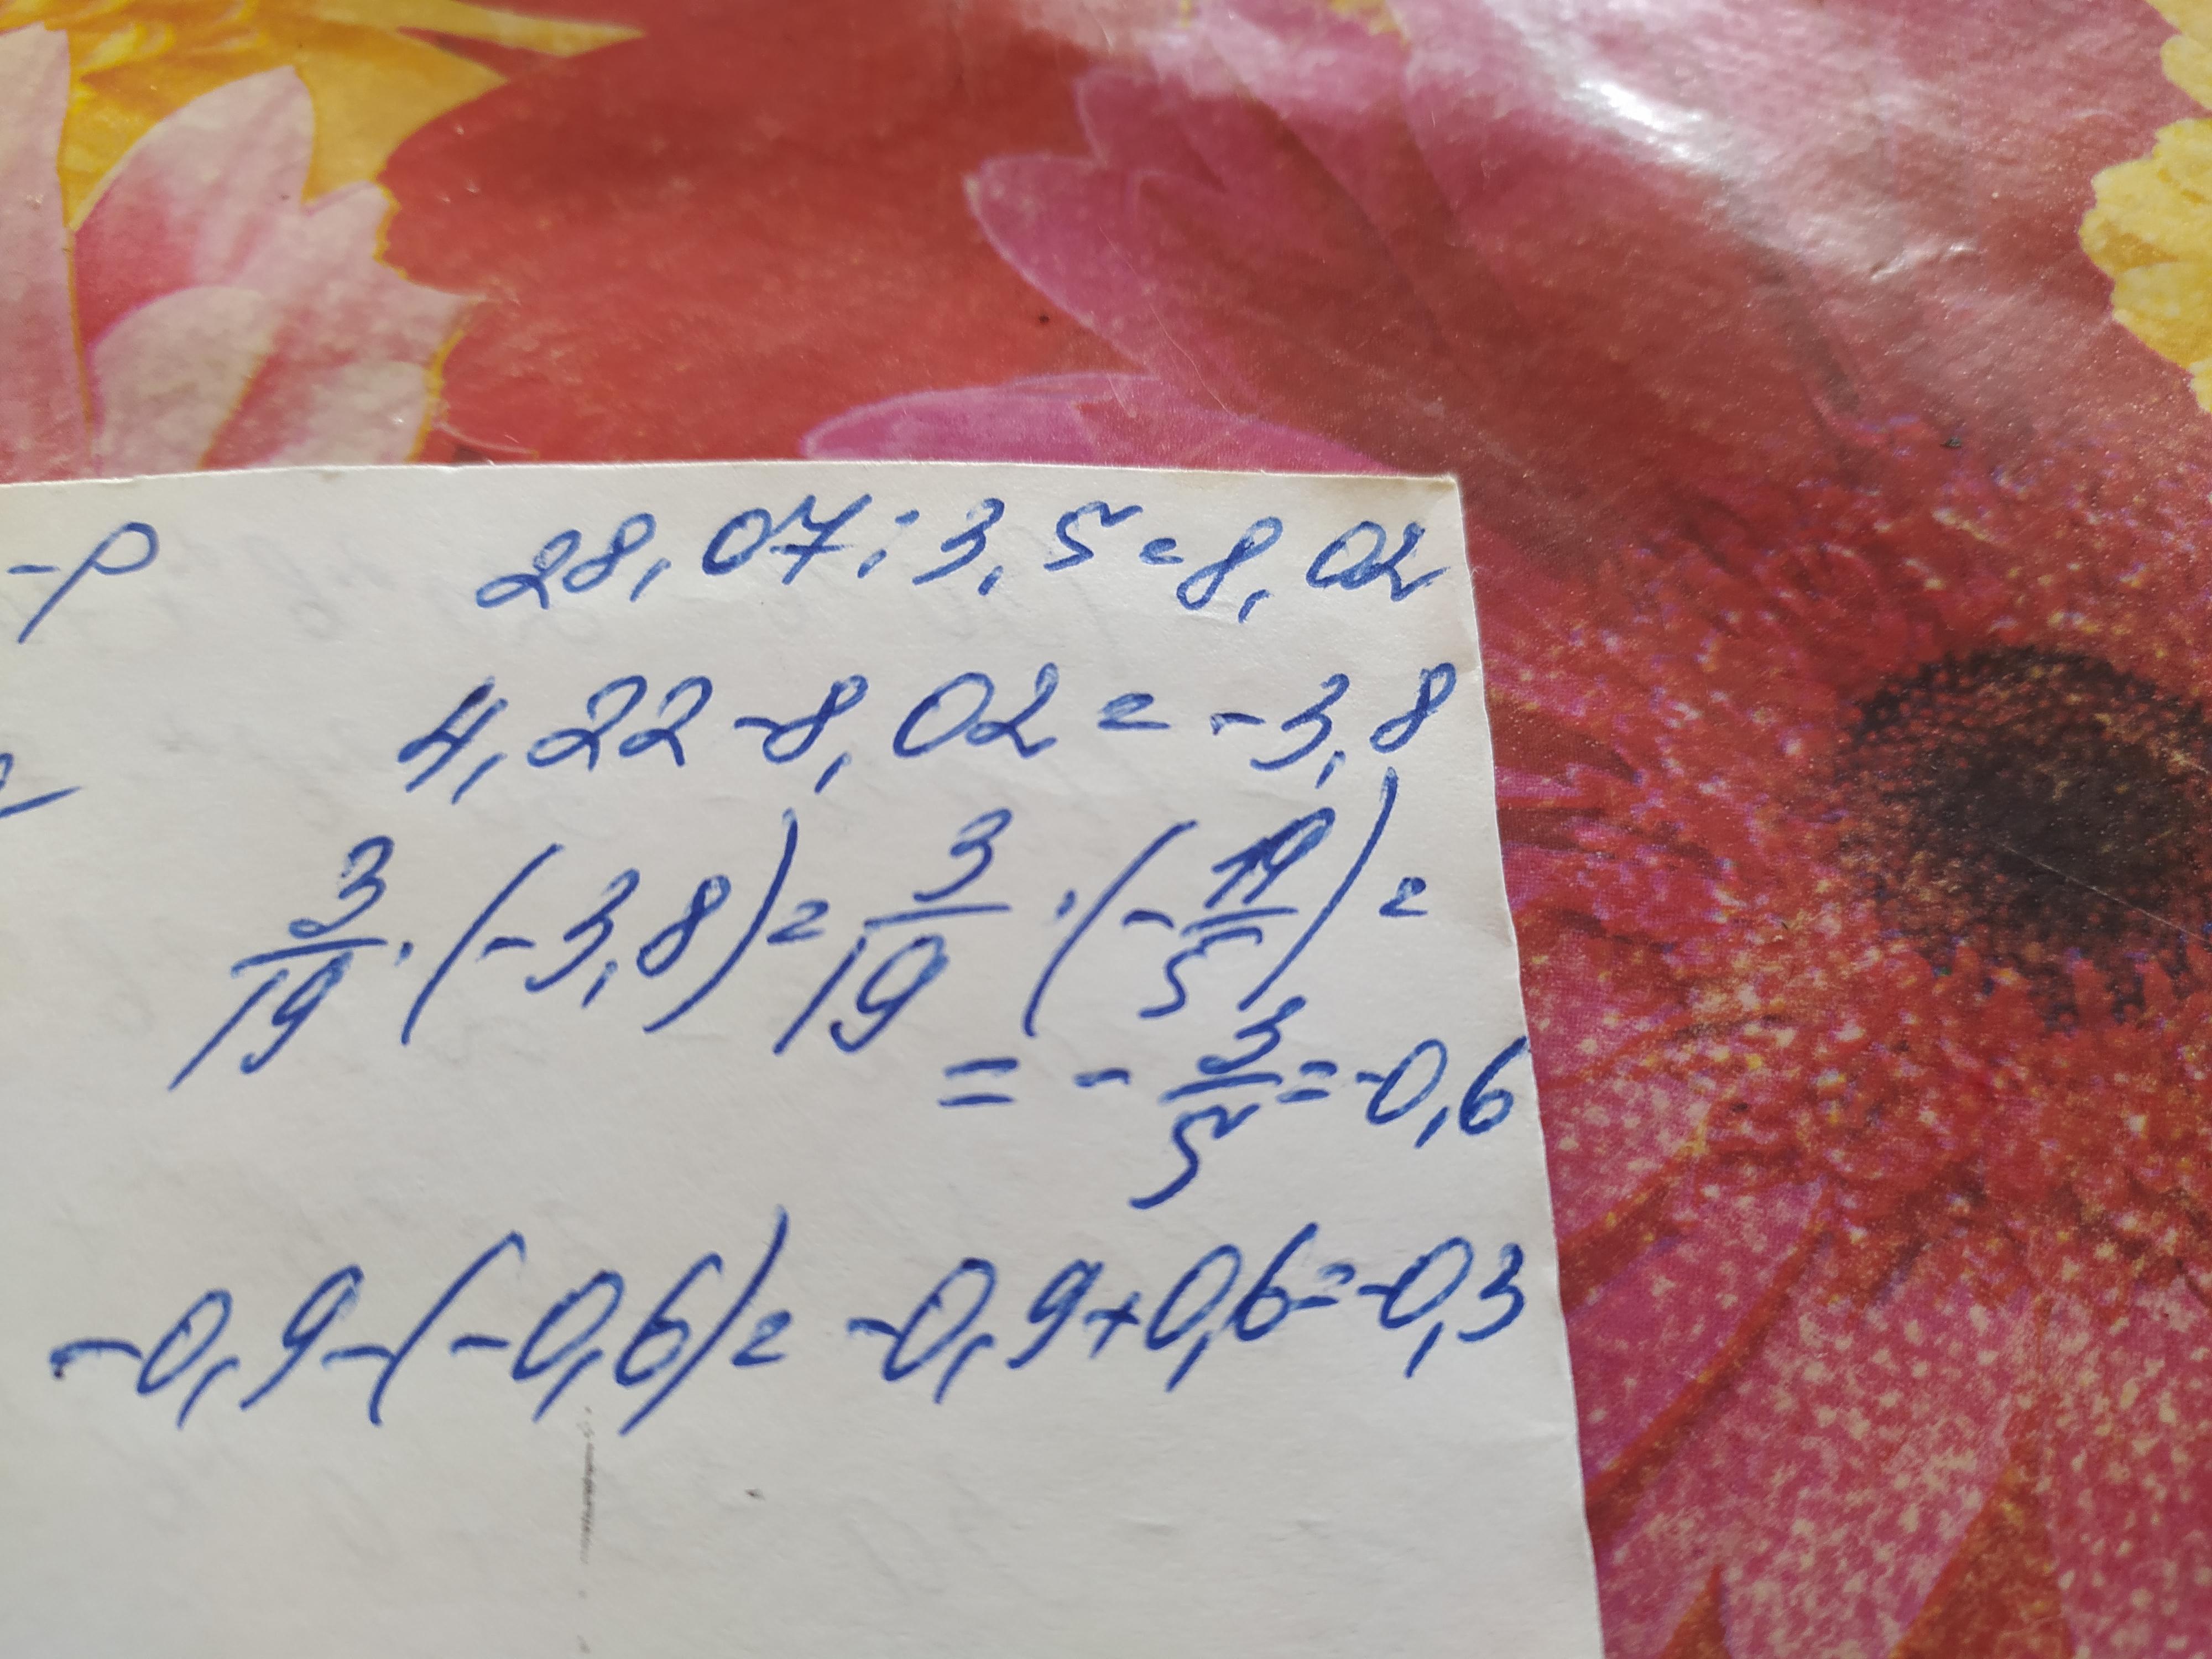 -р 28,07:3,5=8,02
4,22-8,02=-3,8
3/19·(-3,8)=3/19·(-19/5)=
=-3/5=-0,6
-0,9-(-0,6)=-0,9+0,6=-0,3